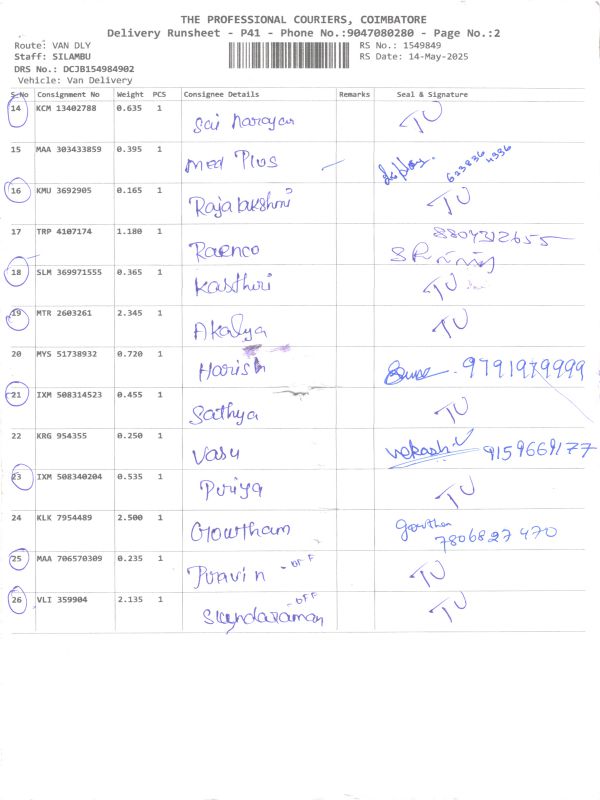 THE PROFESSIONAL COURIERS, COIMBATORE
Delivery Runsheet - P41 - Phone No.:9047080280 - Page No.:2
Route: VAN DLY
Staff: SILAMBU
DRS No.: DCJB154984902
Vehicle: Van Delivery
RS No.: 1549849
RS Date: 14-May-2025
S.No Consignment No Weight PCS Consignee Details Remarks Seal & Signature
14 KCM 13402788 0.635 1 Sai Narayan TU
15 MAA 303433859 0.395 1 Med Plus 623836 4336
16 KMU 3692905 0.165 1 Rajalakshmi TU
17 TRP 4107174 1.180 1 Raenco 8807312655
18 SLM 369971555 0.365 1 Kasthuri TU
19 MTR 2603261 2.345 1 Akalya TU
20 MYS 51738932 0.720 1 Harish 9791979999
21 IXM 508314523 0.455 1 Sathya TU
22 KRG 954355 0.250 1 Vasu 9159669177
23 IXM 508340204 0.535 1 Piriya TU
24 KLK 7954489 2.500 1 Gowtham gowtham
7806827470
25 MAA 706570309 0.235 1 Piravin - OFF TU
26 VLI 359904 2.135 1 Skyndaraman - OFF TU